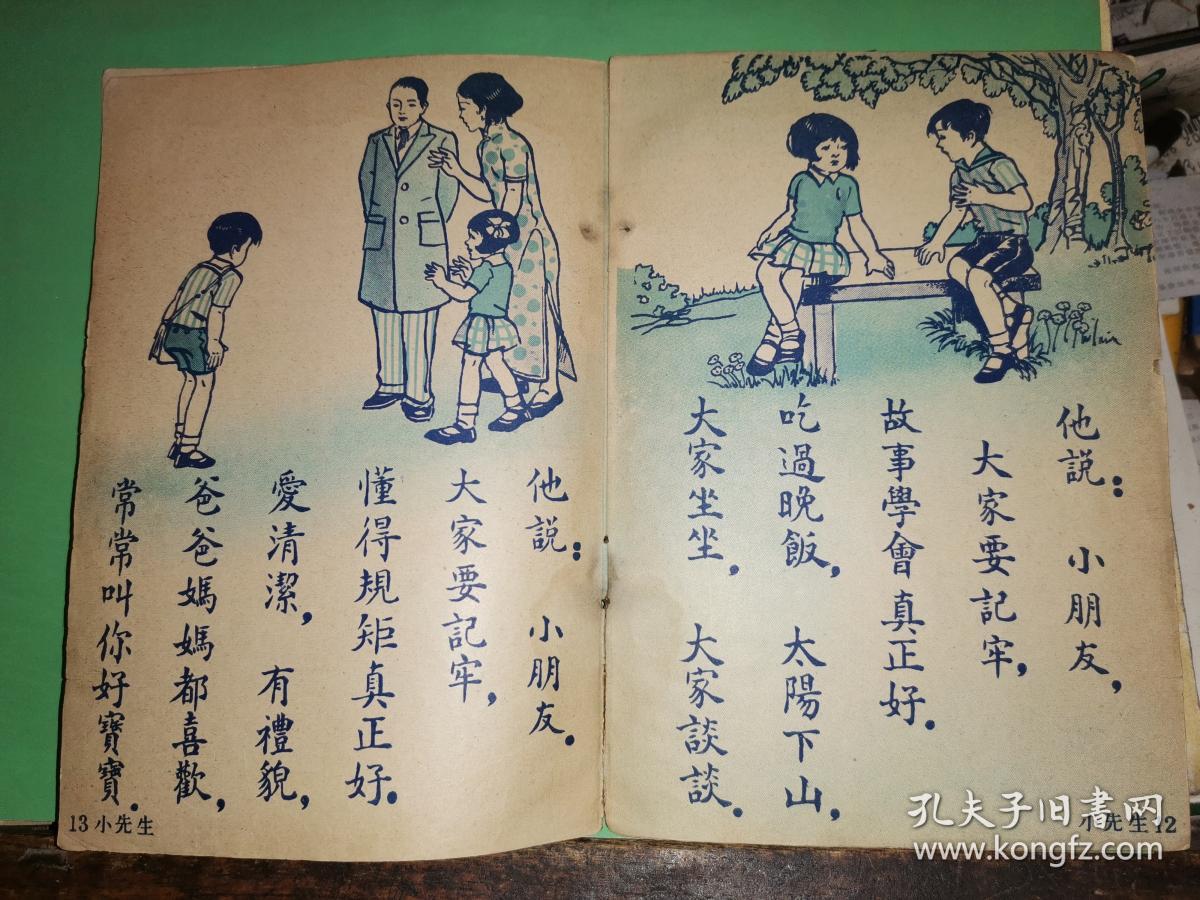 他説：　小朋友，
大家要記牢，
故事學會真正好．
吃過晚飯，　太陽下山，
大家坐坐，　大家談談．
小先生 12
他説：　小朋友．
大家要記牢，
懂得規矩真正好．
愛清潔，　有禮貌，
爸爸媽媽都喜歡，
常常叫你好寶寶．
13 小先生
孔夫子旧書网
www.kongfz.com